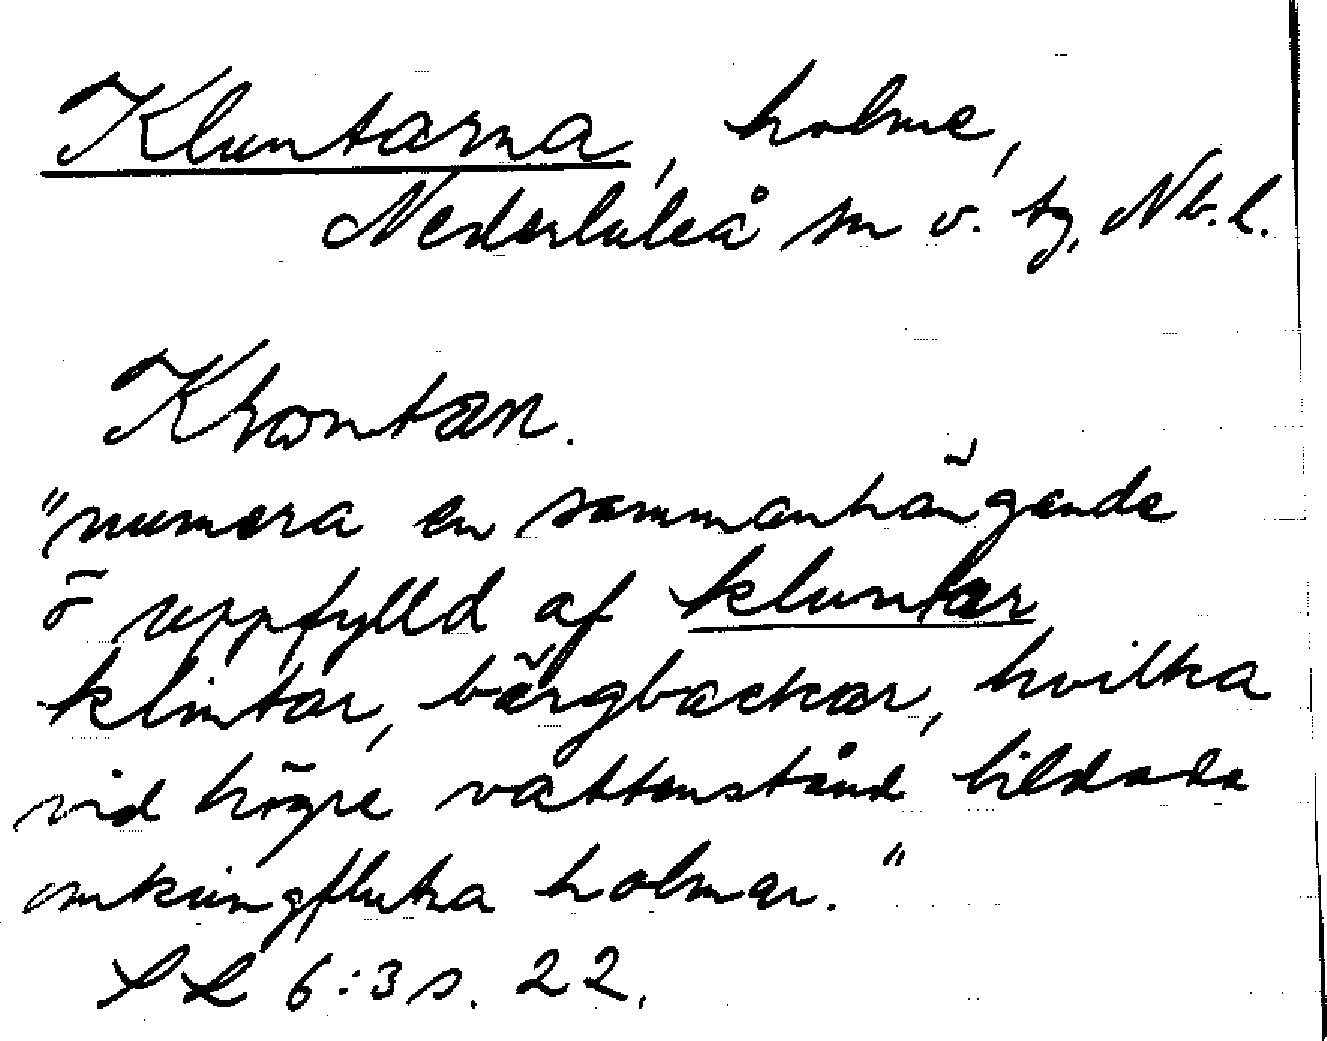 Kluntarna, holme,
Nederluleå sn o. tg, Nb.l.
"numera en sammanhängande
ö uppfylld af kluntar
klintar, bärgbackar, hvilka
vid högre vattenstånd bildade
omkringflutna holmar."
6:3 s. 22.